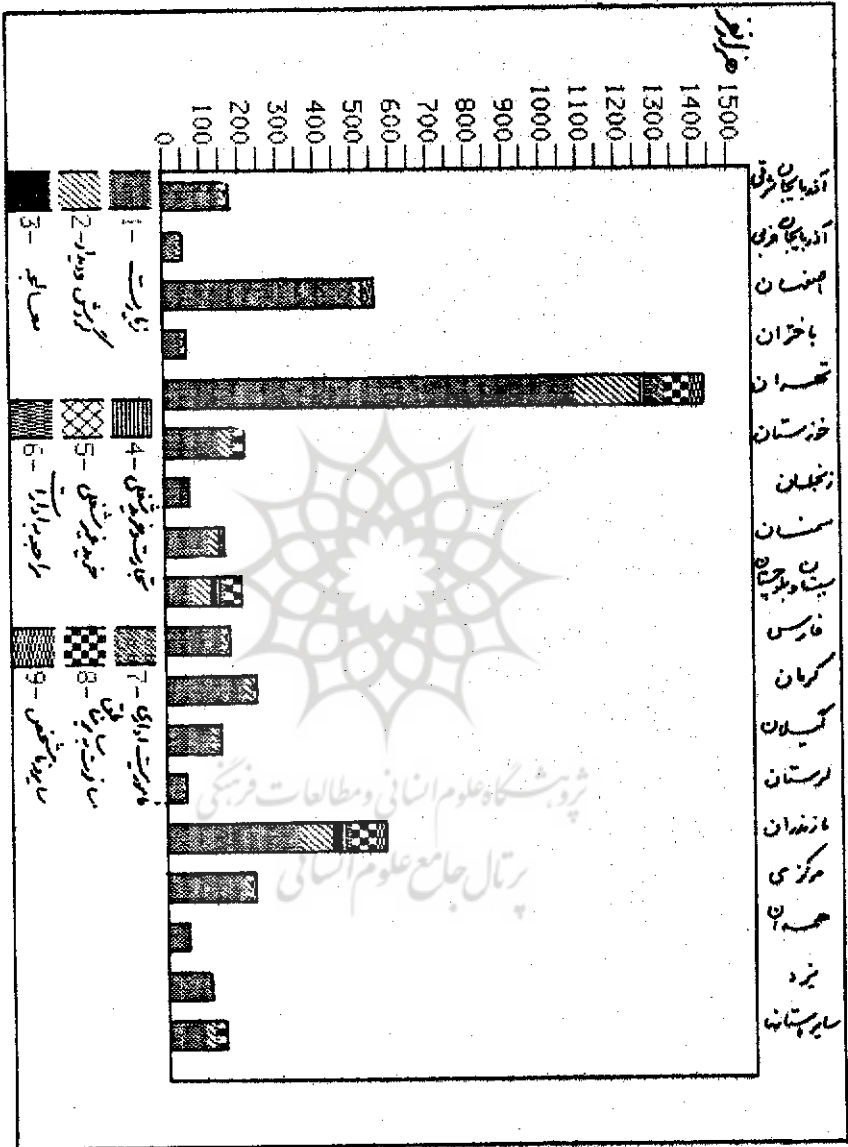 هزار نفر
1500
1400
1300
1200
1100
1000
900
800
700
600
500
400
300
200
100
0
آذربایجان شرقی
آذربایجان غربی
اصفهان
باختران
تهران
خوزستان
زنجان
سمنان
سیستان و بلوچستان
فارس
کرمان
گیلان
لرستان
مازندران
مرکزی
همدان
یزد
سایر استانها
1- زیارت
2- گردش و دیدار
3- معالجه
4- تجارت و خرید شغلی
5- خرید غیر شغلی
6- مراجعه به ادارات
7- ماموریت اداری
8- مسافرت به
9- سایر و نامشخص
پژوهشگاه علوم انسانی و مطالعات فرهنگی
پرتال جامع علوم انسانی